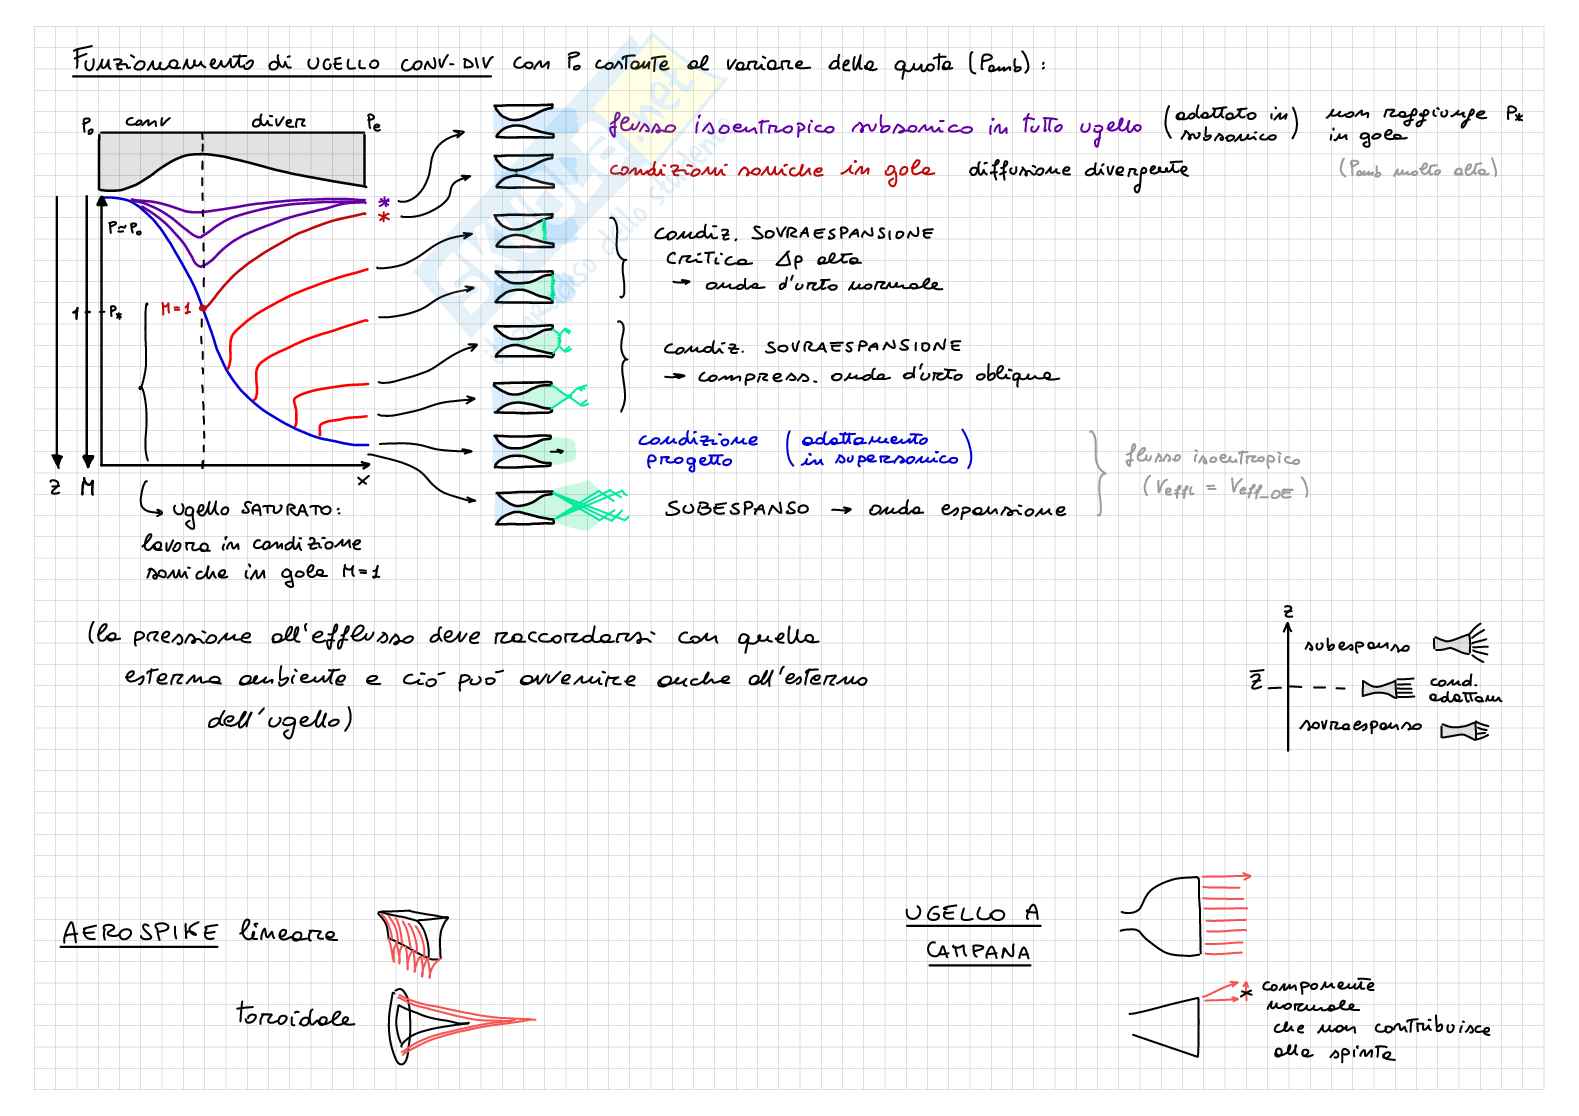 Funzionamento di UGELLO CONV-DIV con P₀ costante al variare della quota (Pamb) :
P₀ conv diver Pe
flusso isoentropico subsonico in tutto ugello (adattato in subsonico) non raggiunge P* in gola
condizioni soniche in gola diffusione divergente (Pamb molto alta)
*
*
P≃P₀
condiz. SOVRAESPANSIONE
critica Δp alta
→ onda d'urto normale
1 P* M=1
condiz. SOVRAESPANSIONE
→ compress. onda d'urto obliqua
condizione progetto (adattamento in supersonico)
flusso isoentropico
(Veffl = Veff_OE)
z M x
SUBESPANSO → onda espansione
↳ ugello SATURATO:
lavora in condizione
soniche in gola M=1
(la pressione all'efflusso deve raccordarsi con quella
esterna ambiente e ciò può avvenire anche all'esterno
dell'ugello)
z
subespanso
z̅ cond. adattam
sovraespanso
AEROSPIKE lineare
toroidale
UGELLO A
CAMPANA
* componente
normale
che non contribuisce
alla spinta